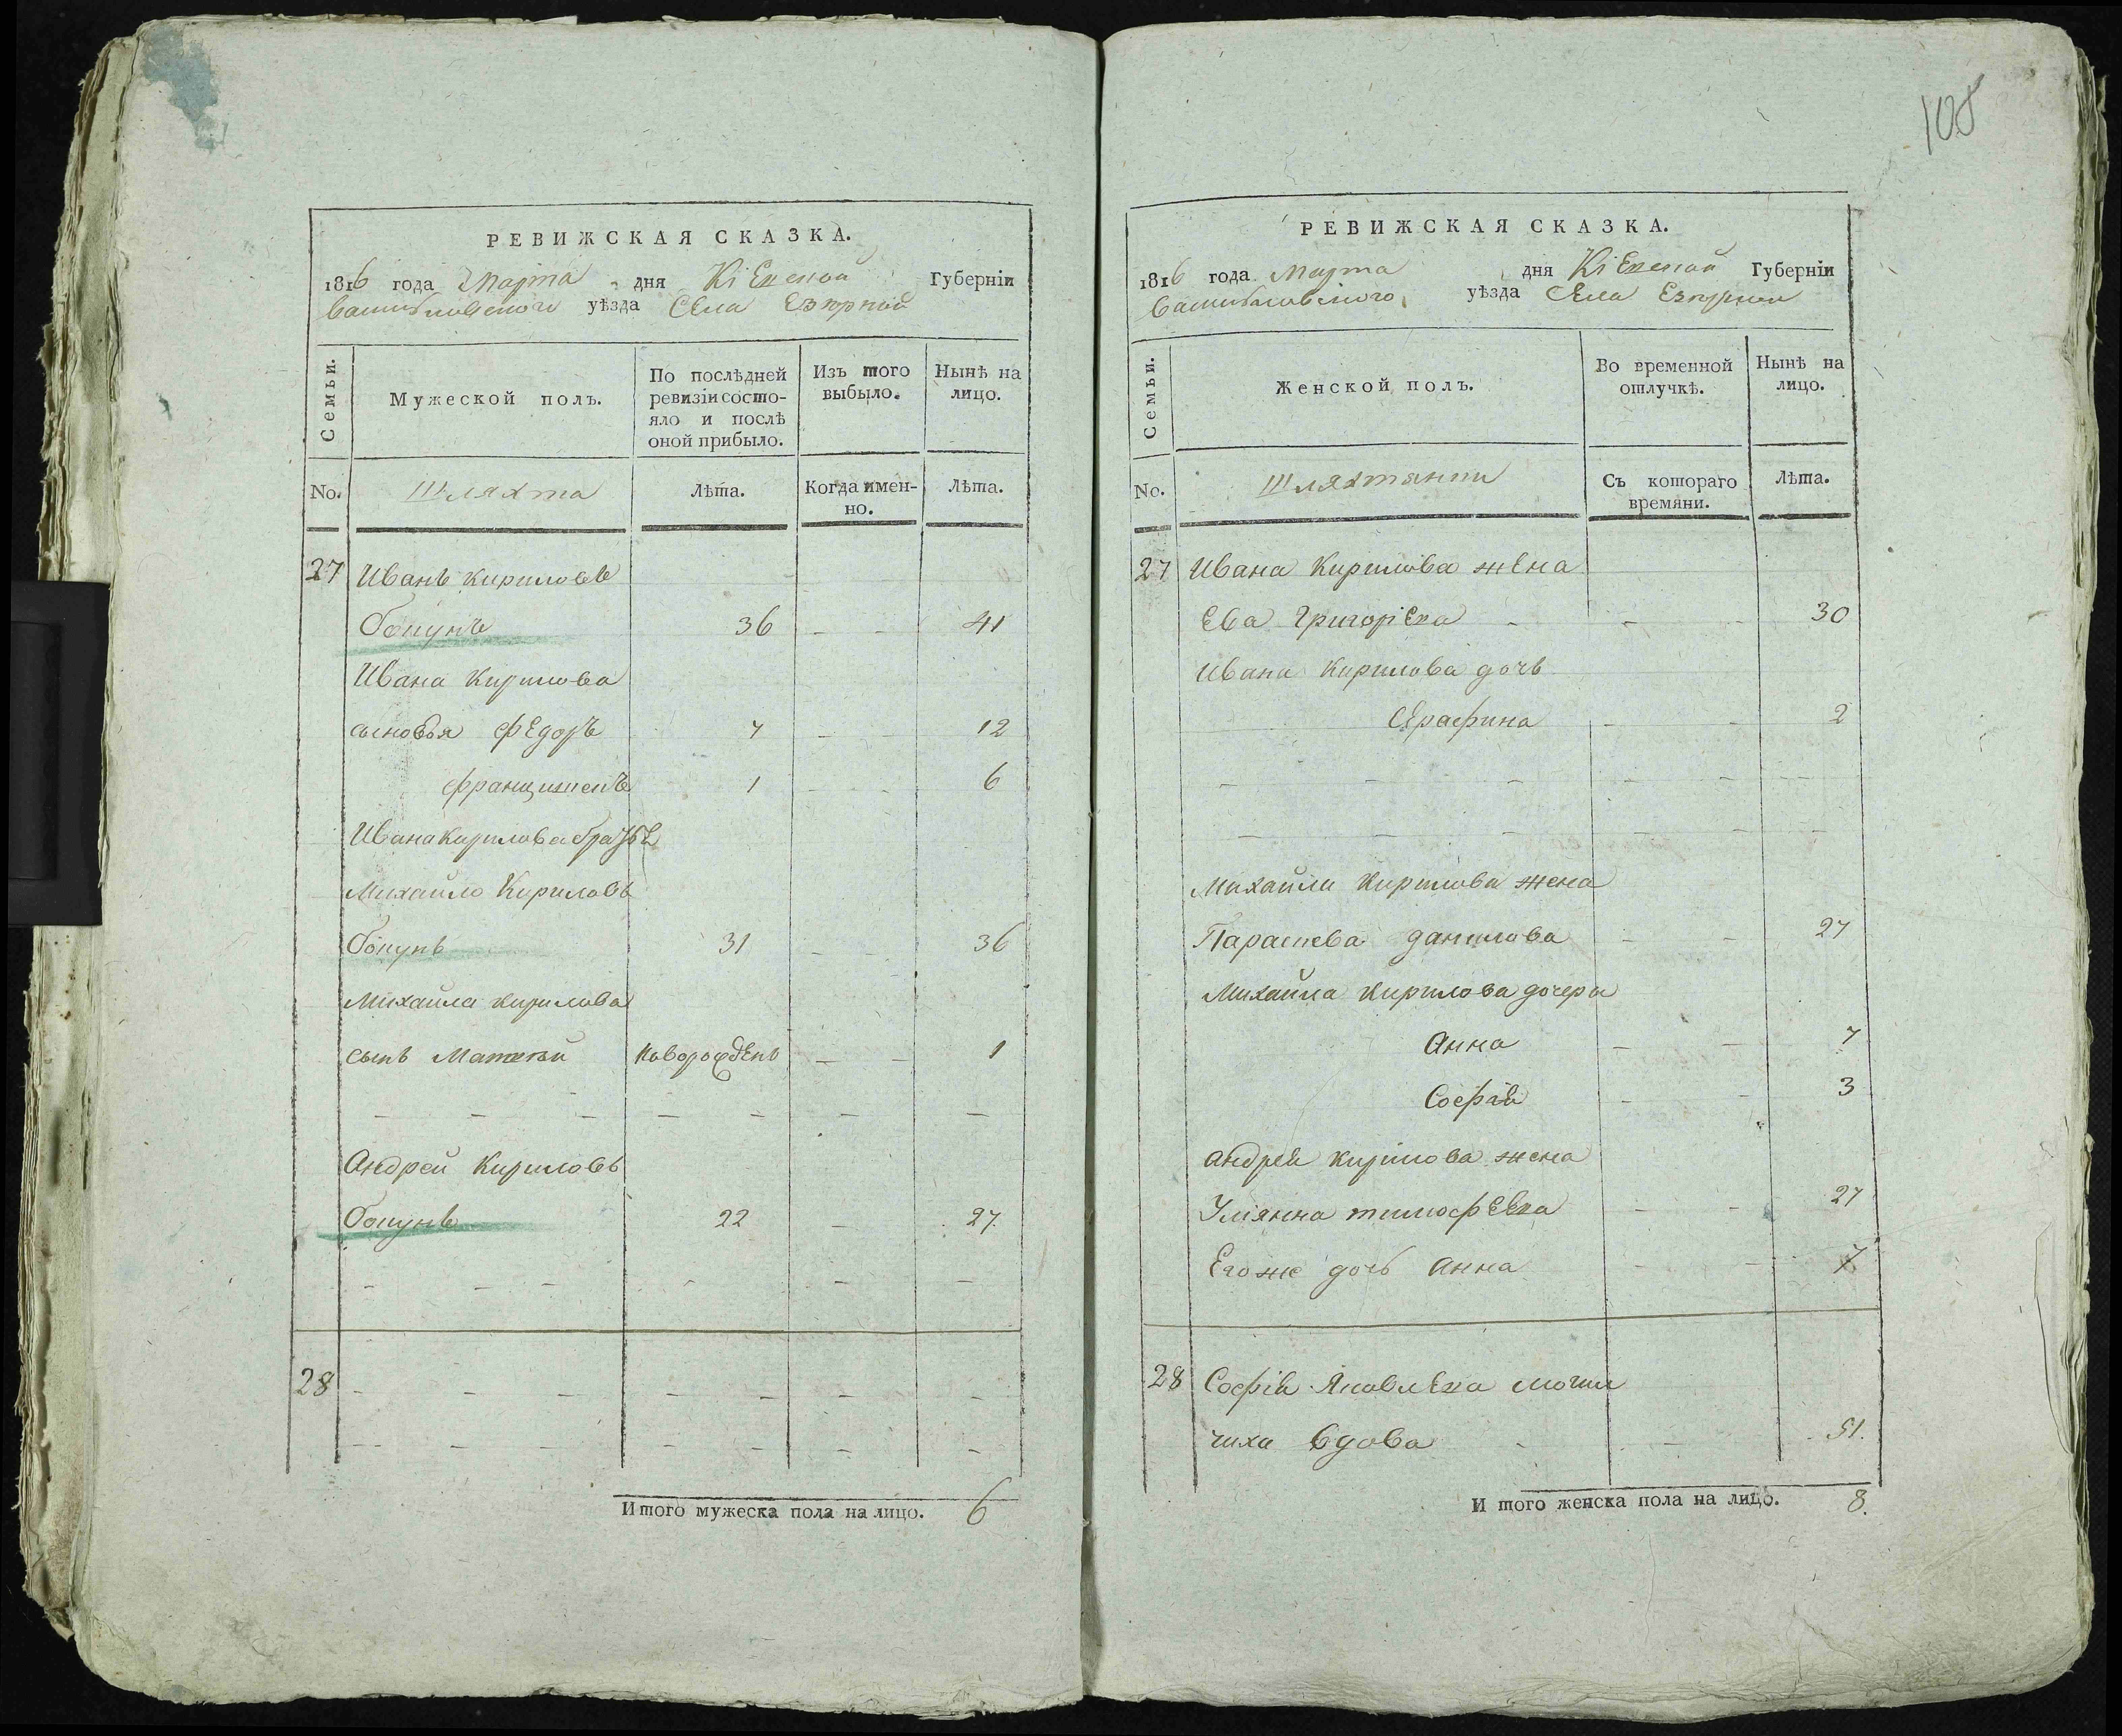 108
РЕВИЖСКАЯ СКАЗКА.
1816 года Марта дня Кіевской Губерніи
Васильковского уѣзда Села Езерной
Семьи.
Мужеской полъ.
По послѣдней ревизіи состояло и послѣ оной прибыло.
Изъ того выбыло.
Нынѣ на лицо.
No. Шляхта Лѣта. Когда именно. Лѣта.
27 Иванъ Кириловъ
36 - - 41
Ивана Кирилова
сыновья Федоръ 7 - - 12
Францишекъ 1 - - 6
Ивана Кирилова братья
Михайло Кириловъ
31 - - 36
Михайла Кирилова
сынъ Матвѣй новорожденъ - - 1
- - - - - - -
Андрей Кириловъ
22 - 27.
- - - - - -
28 - - - - - - -
- - - - - - -
Итого мужеска пола на лицо. 6
РЕВИЖСКАЯ СКАЗКА.
1816 года Марта дня Кіевской Губерніи
Васильковского уѣзда Села Езерной
Семьи.
Женской полъ.
Во временной отлучкѣ.
Нынѣ на лицо.
No. Шляхтянки Съ котораго времяни. Лѣта.
27 Ивана Кирилова жена
Ева Григорiева - - - 30
Ивана Кирилова дочь
Серафина - - 2
- - - - - -
- - - - - -
Михайла Кирилова жена
Параскева Данилова - - 27
Михайла Кирилова дочери
Анна - - 7
Софія - - 3
Андрея Кирилова жена
Уліянна Тимофеева - - 27
Егоже дочь Анна - - 7
28 Софія Яковлева Могил
чиха вдова - - 51.
И того женска пола на лицо. 8.